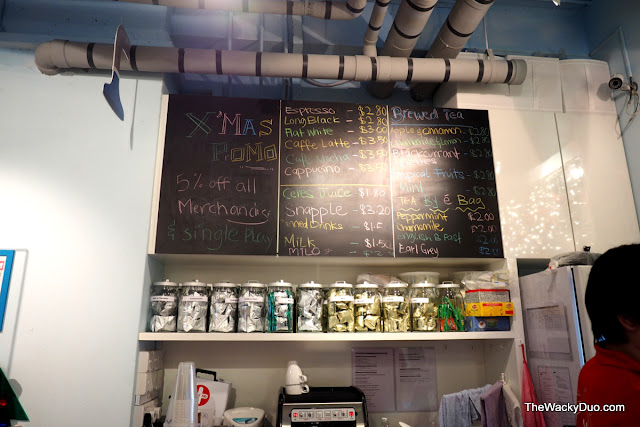 X'MAS
PoMo
5% off all
Merchandise
& single
Espresso - $2.80
Long Black - $2.80
Flat White - $3.00
Caffe Latte - $3.50
Cafe Mocha - $3.50
Cappucino - $3.50
Ceres Juice - $1.80
Snapple - $3.20
Drinks -
Milk - $1.50
MILO
Brewed Tea
Apple & cinnamon - $2.80
Blackcurrant
Fruits - $2.80
Mint
TEA By & Bag
Peppermint $2.00
Chamomile $2.0
English B'Fast $2.0
Earl Grey
TheWackyDuo.com